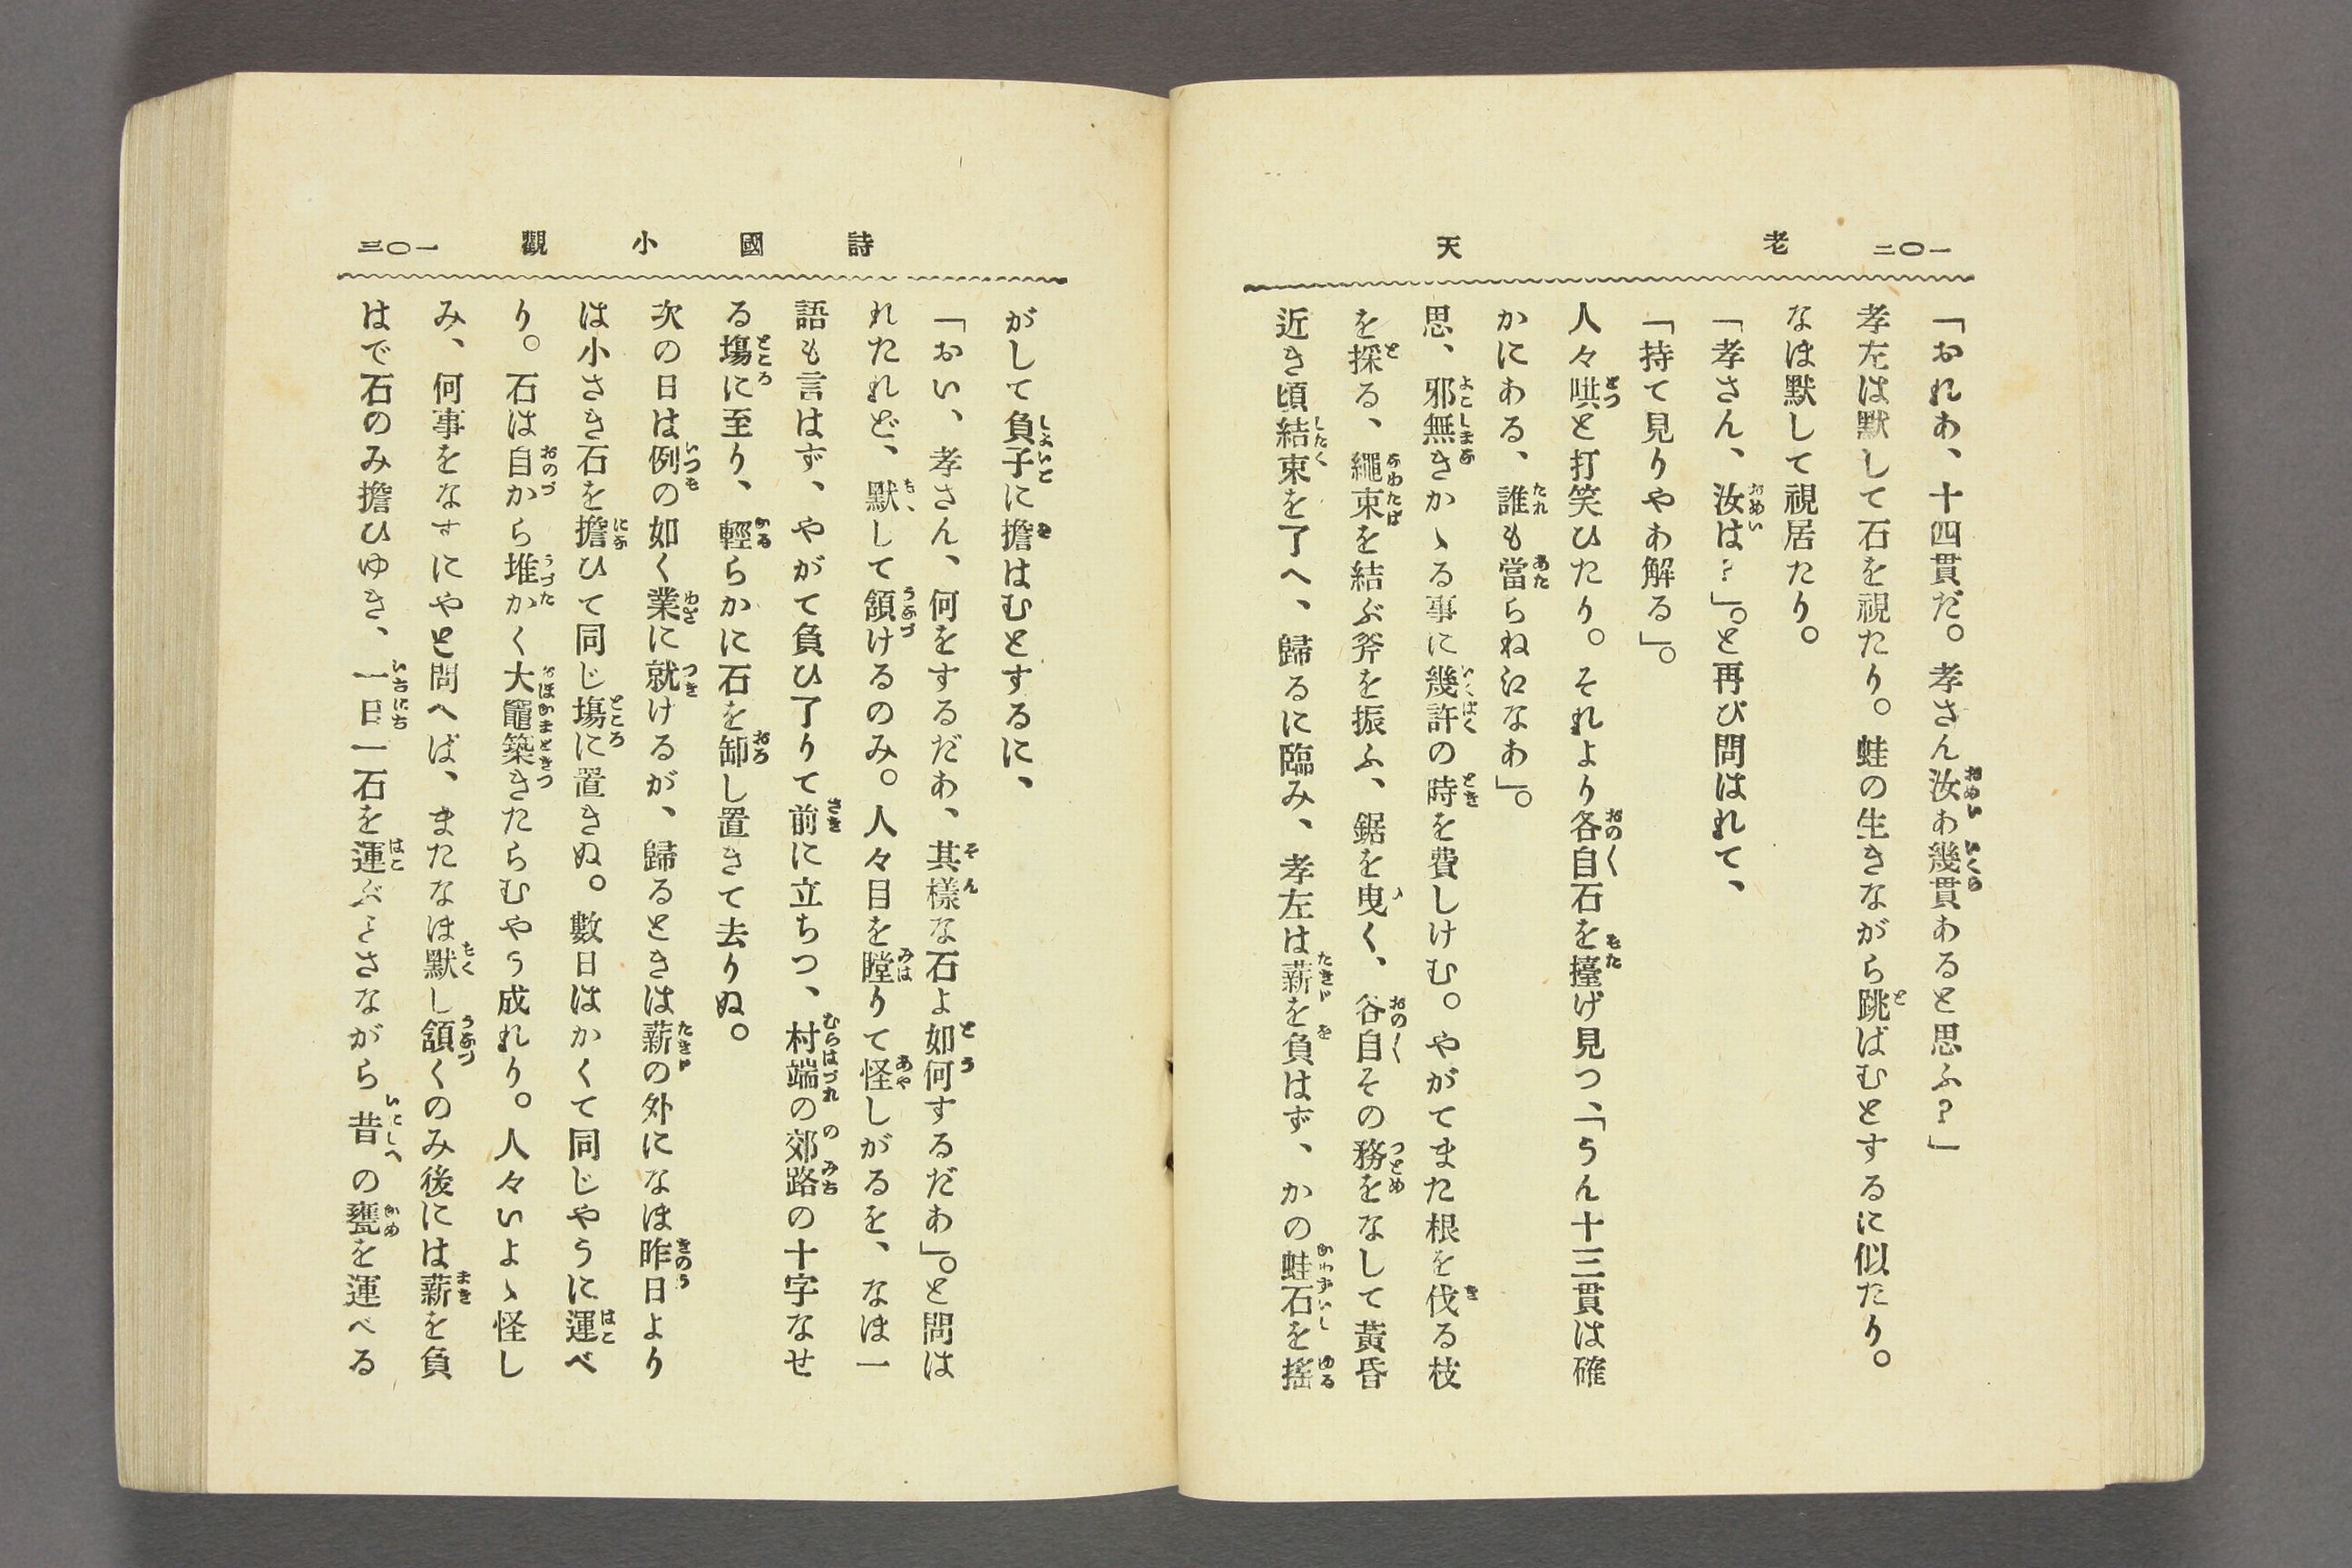 一〇二
老天
「おれあ、十四貫だ。孝さん汝あ幾貫あると思ふ？」
孝左は默して石を視たり。蛙の生きながら跳ばむとするに似たり。
なほ默して視居たり。
「孝さん、汝は？」。と再び問はれて、
「持て見りやあ解る」。
人々哄と打笑ひたり。それより各自石を擡げ見つ、「うん十三貫は確
かにある、誰も當らねえなあ」。
思、邪無きかゝる事に幾許の時を費しけむ。やがてまた根を伐る枝
を採る、繩束を結ぶ斧を振ふ、鋸を曳く、各自その務をなして黄昏
近き頃結束を了へ、歸るに臨み、孝左は薪を負はず、かの蛙石を搖
詩國小觀
一〇三
がして負子に擔はむとするに、
「おい、孝さん、何をするだあ、其樣な石よ如何するだあ」。と問は
れたれど、默して頷けるのみ。人々目を瞠りて怪しがるを、なほ一
語も言はず、やがて負ひ了りて前に立ちつ、村端の郊路の十字なせ
る塲に至り、輕らかに石を卸し置きて去りぬ。
次の日は例の如く業に就けるが、歸るときは薪の外になほ昨日より
は小さき石を擔ひて同じ塲に置きぬ。數日はかくて同じやうに運べ
り。石は自から堆かく大竈築きたらむやう成れり。人々いよゝ怪し
み、何事をなすにやと問へば、またなほ默し頷くのみ後には薪を負
はで石のみ擔ひゆき、一日一石を運ぶこさながら昔の甕を運べる